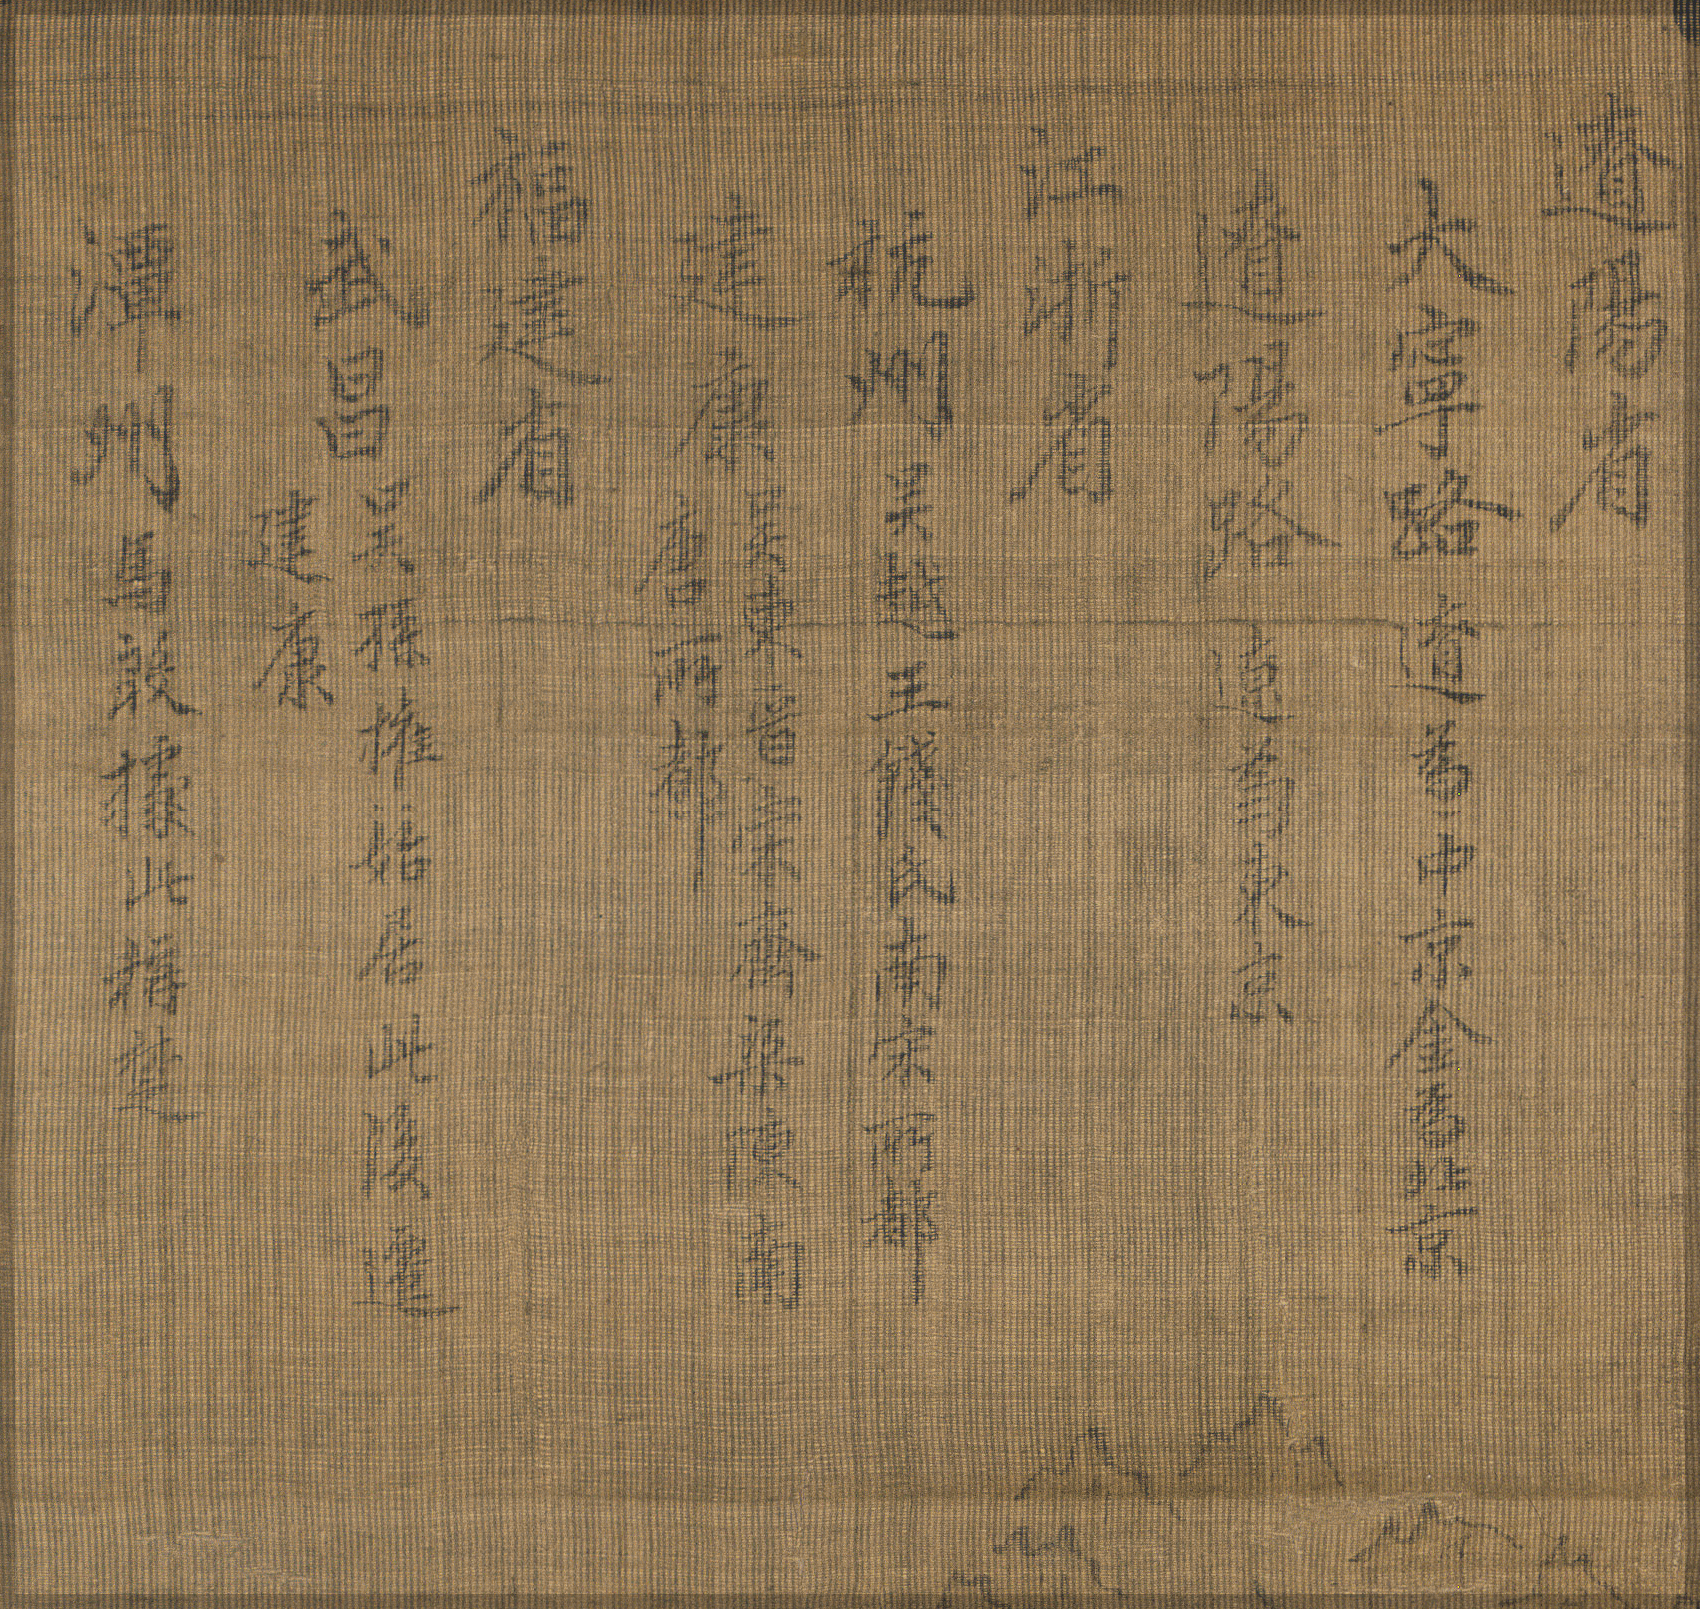 遼陽省
大寧路 遼為中京金為北京
遼陽路 遼為東京
江浙省
杭州 吳越王錢氏南宋所都
建康 吳東晉宋齊梁陳南
唐所都
福建省
武昌 吳孫權始居此後遷
建康
潭州 馬殷據此稱楚